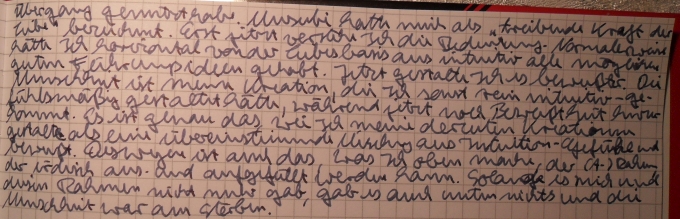 Übergang gemacht habe. Musubi hatte mich als "treibende Kraft der
Tube" bezeichnet. Erst jetzt verstehe ich die Bedeutung. Normalerweise
hätte ich horizontal von der Tubebasis aus intuitiv alle möglichen
guten Führungsideen gehabt. Jetzt gestalte ich es bewußter. Die
Menschheit ist meine Kreation, die ich sonst rein intuitiv-ge-
fühlsmäßig gestaltet hätte, während jetzt noch Bewußtheit hinzu-
kommt. Es ist genau das, wie ich meine derzeitigen Kreationen
gestalte als eine übereinstimmende Mischung aus Intuition-Gefühl und
bewußt. Deswegen ist auch das was ich oben mache, der (4-) Rahmen
der irdisch aus- und aufgefüllt werden kann. Solange es mich und
diesen Rahmen nicht nur gab, gab es auch unten nichts und die
Menschheit war am Sterben.